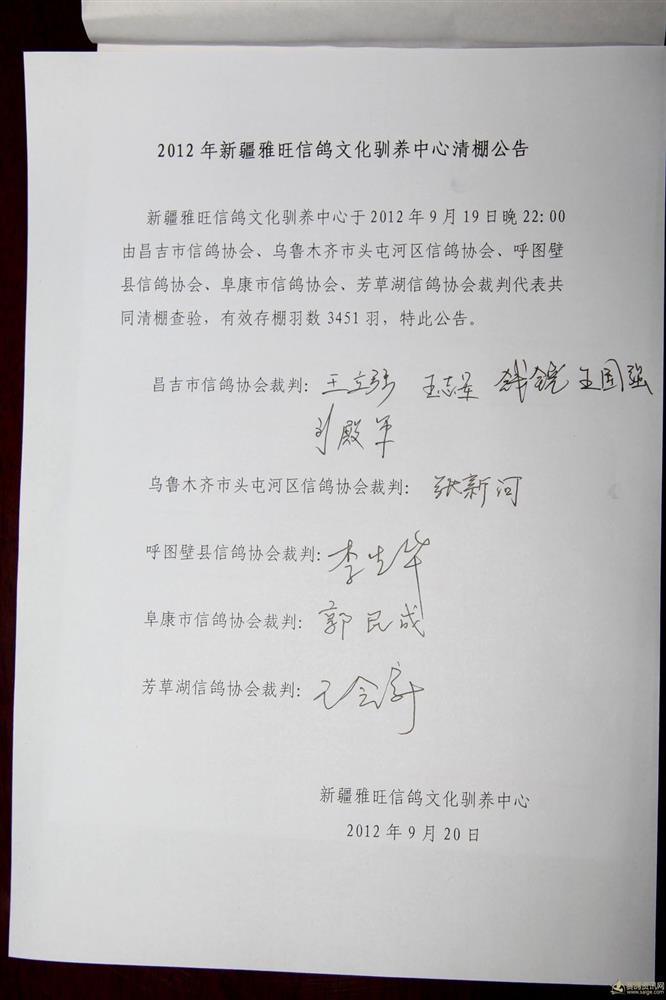 2012年新疆雅旺信鸽文化驯养中心清棚公告
新疆雅旺信鸽文化驯养中心于2012年9月19日晚22:00
由昌吉市信鸽协会、乌鲁木齐市头屯河区信鸽协会、呼图壁
县信鸽协会、阜康市信鸽协会、芳草湖信鸽协会裁判代表共
同清棚查验，有效存棚羽数3451羽，特此公告。
昌吉市信鸽协会裁判：王立强 王国强
刘殿军
乌鲁木齐市头屯河区信鸽协会裁判：张新河
呼图壁县信鸽协会裁判：李生华
阜康市信鸽协会裁判：郭民成
芳草湖信鸽协会裁判：
新疆雅旺信鸽文化驯养中心
2012年9月20日
赛鸽资讯网
www.saige.com